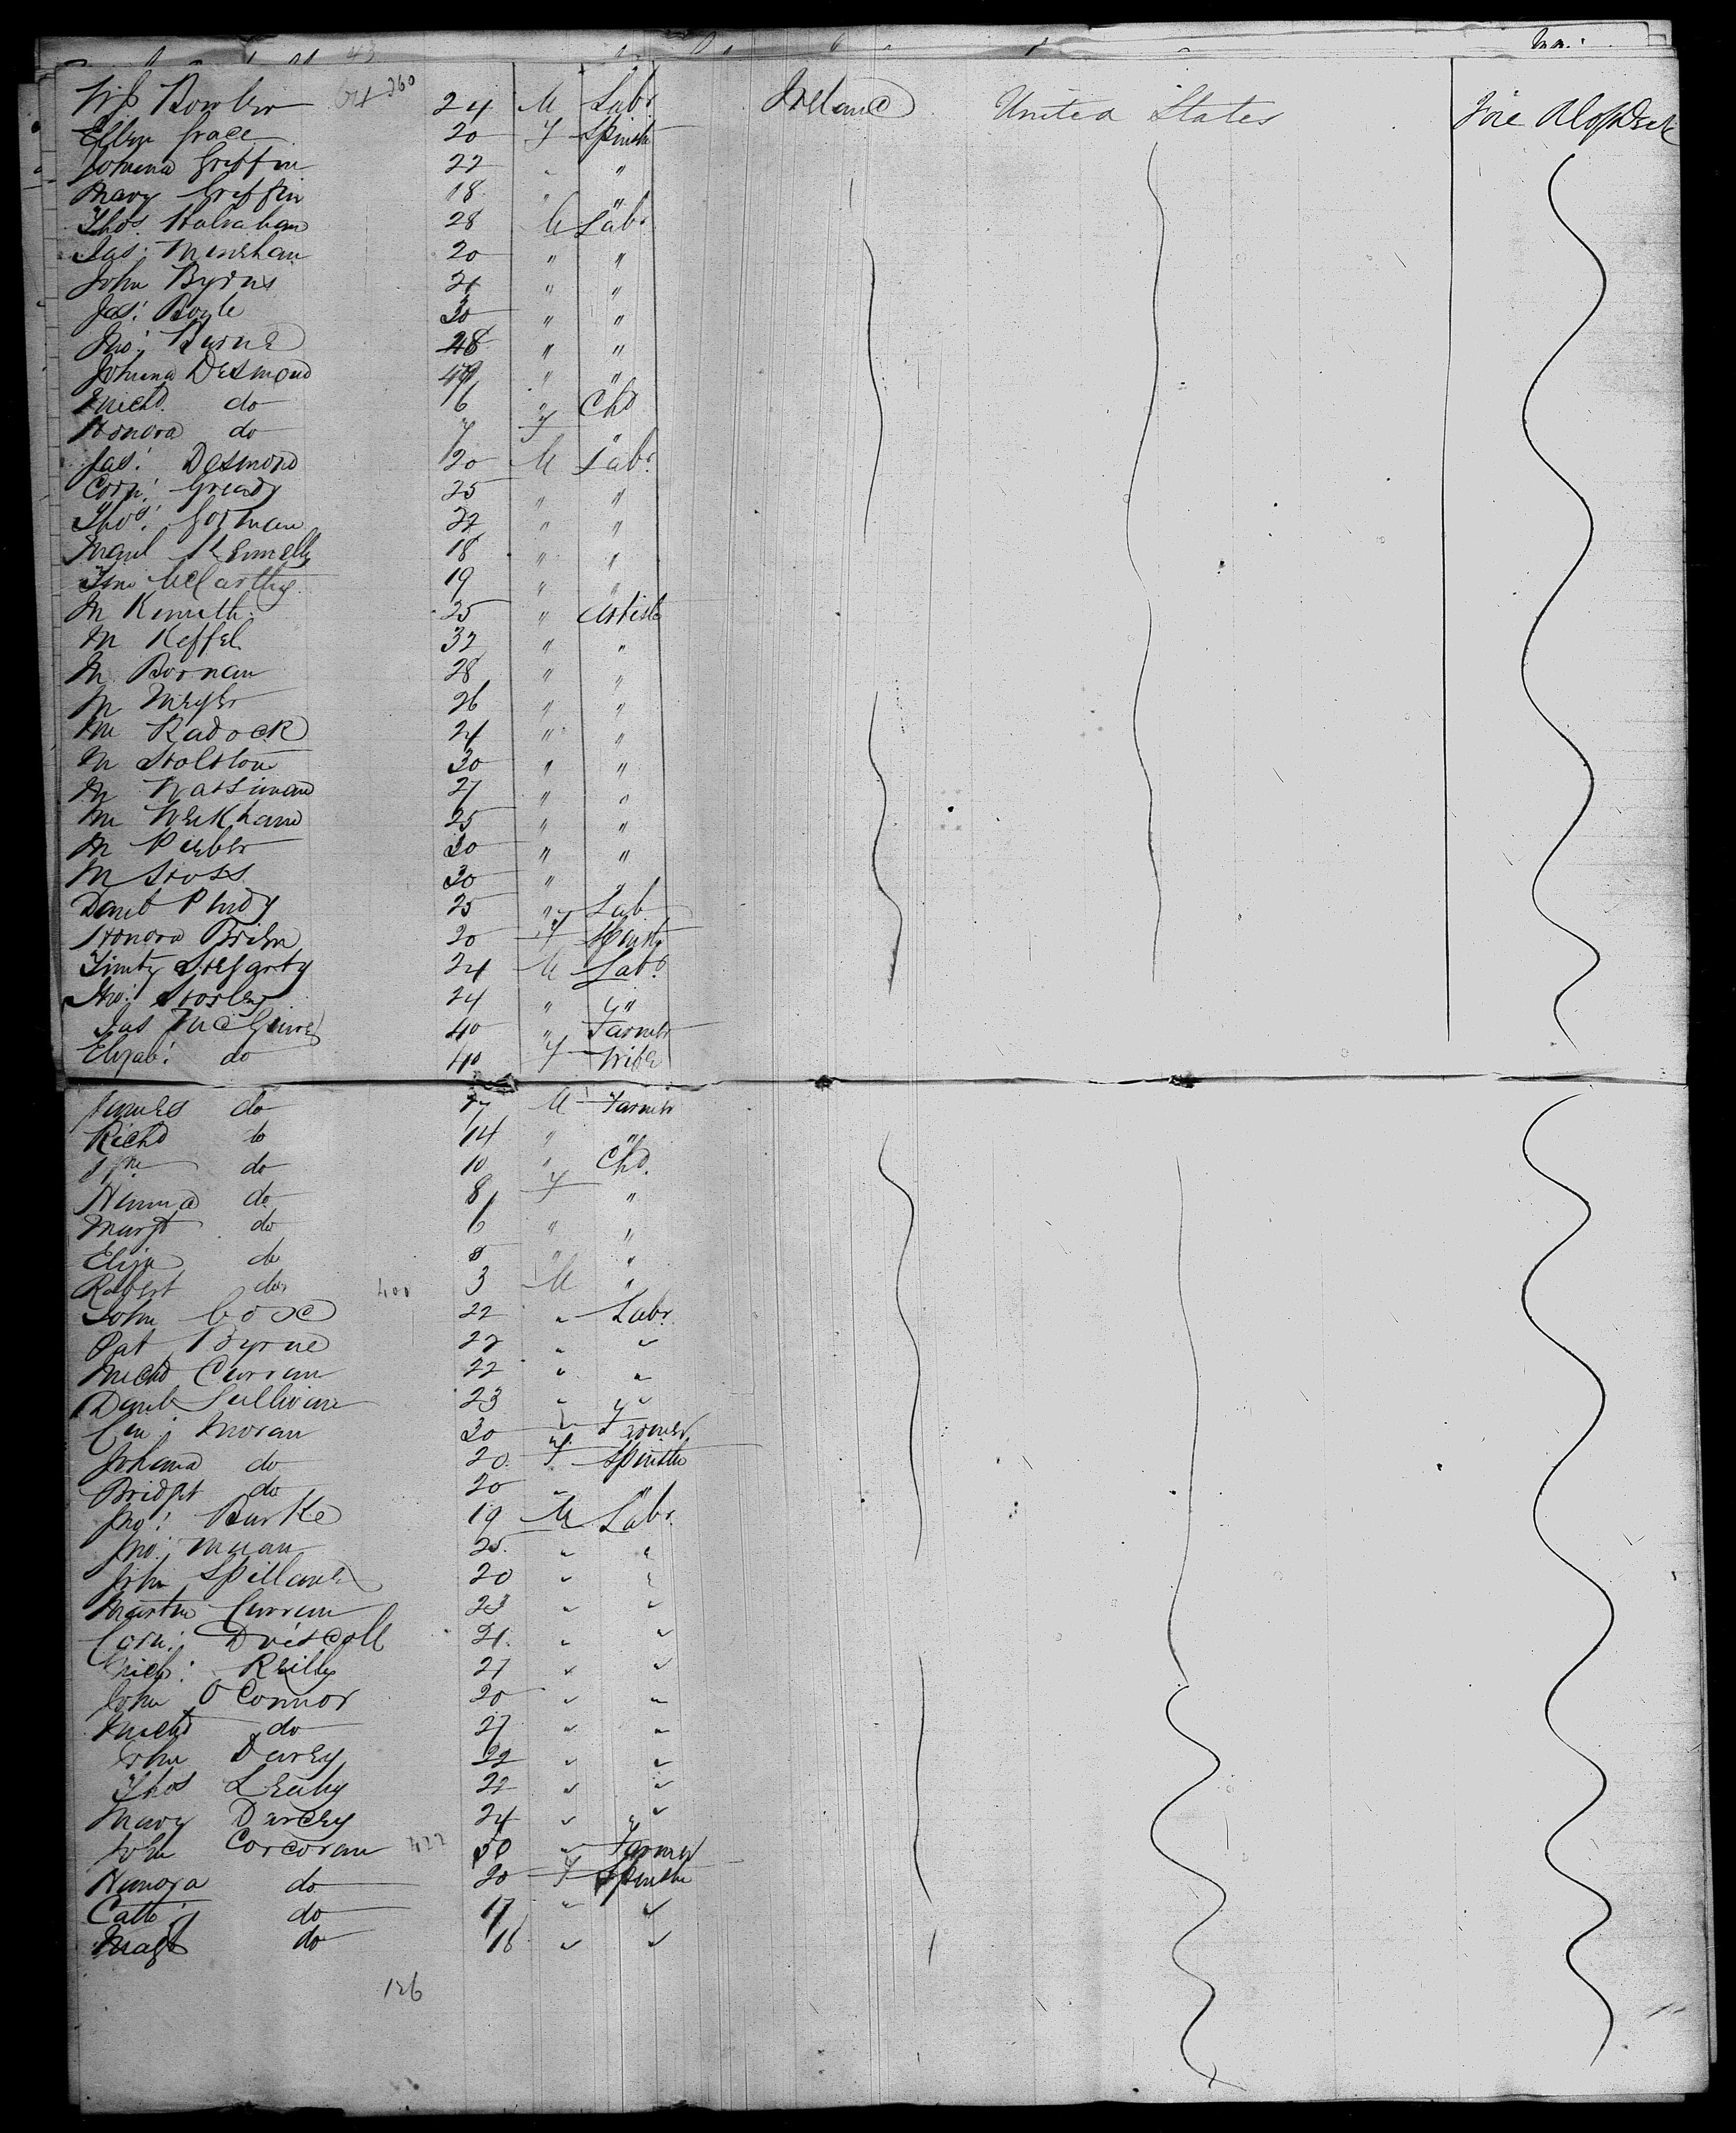 43
Wm Bowler 64 360 24 M Labr Ireland United States Fore Up Deck
Ellen Grace 20 F Spinstr
Johana Griffin 22 " "
Mary Griffin 18 " "
Thos. Halrahan 28 M Labr
Jas: Minehan 20 " "
John Byrns 21 " "
Jas: Boyle 30 " "
Jno: Burne 28 " "
Johana Desmond 40 " "
Michl. do 6 " Chd
Honora do 7 F "
Jas: Desmond 20 M Labr.
Corn: Gready 25 " "
Thos: Gorman 22 " "
18 " "
Tim McCarthy 19 " "
M 25 " Artists
M Keffel 32 " "
M Bornan 28 " "
M Meyer 26 " "
M Radock 24 " "
M Holston 30 " "
M Wassiman 27 " "
M Werkham 25 " "
M Pieber 30 " "
M Stoss 30 " "
Danl 25 " Lab
Honora Brien 20 F Spinstr
Timty Hegarty 24 M Labr
Jno: Horley 24 " "
Jas McGuire 40 " Farmer
Elizab: do 40 F Wife
James do 17 M Farmer
Richd do 14 " "
do 10 " Chd.
Hanna do 8 F "
Margt do 6 " "
Eliza do 5 " "
Robert do 400 3 M "
John Cox 22 " Labr
Pat Byrne 22 " "
Michl Curran 22 " "
Danl Sullivan 23 " "
Moran 30 " Farmer
Johana do 20 F Spinstr
Bridget do 20 " "
Jno: Burke 19 M Labr.
Jno: 25 " "
John Spillane 20 " "
Martin Curran 23 " "
Corn: Driscoll 21 " "
Mich: Reilly 27 " "
John O Connor 20 " "
Michl do 27 " "
John Darcy 22 " "
Thos Leahy 22 " "
Mary Darcey 24 " "
John Corcoran 422 50 " Farmer
Hanora do 20 F Spinstr
Cath: do 17 " "
Magt do 16 " "
126